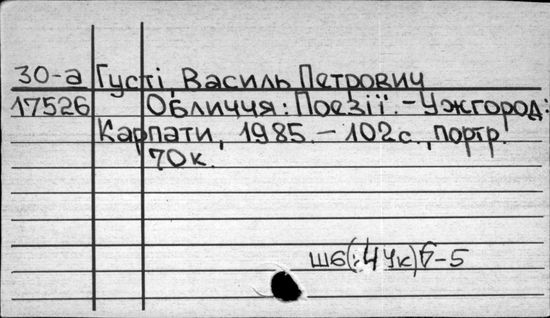 30-а Густі, Василь Петрович
17526 Обличчя: Поезії. - Ужгород:
Карпати, 1985. - 102с., портр.
70к.
Ш6(:4Ук)6-5